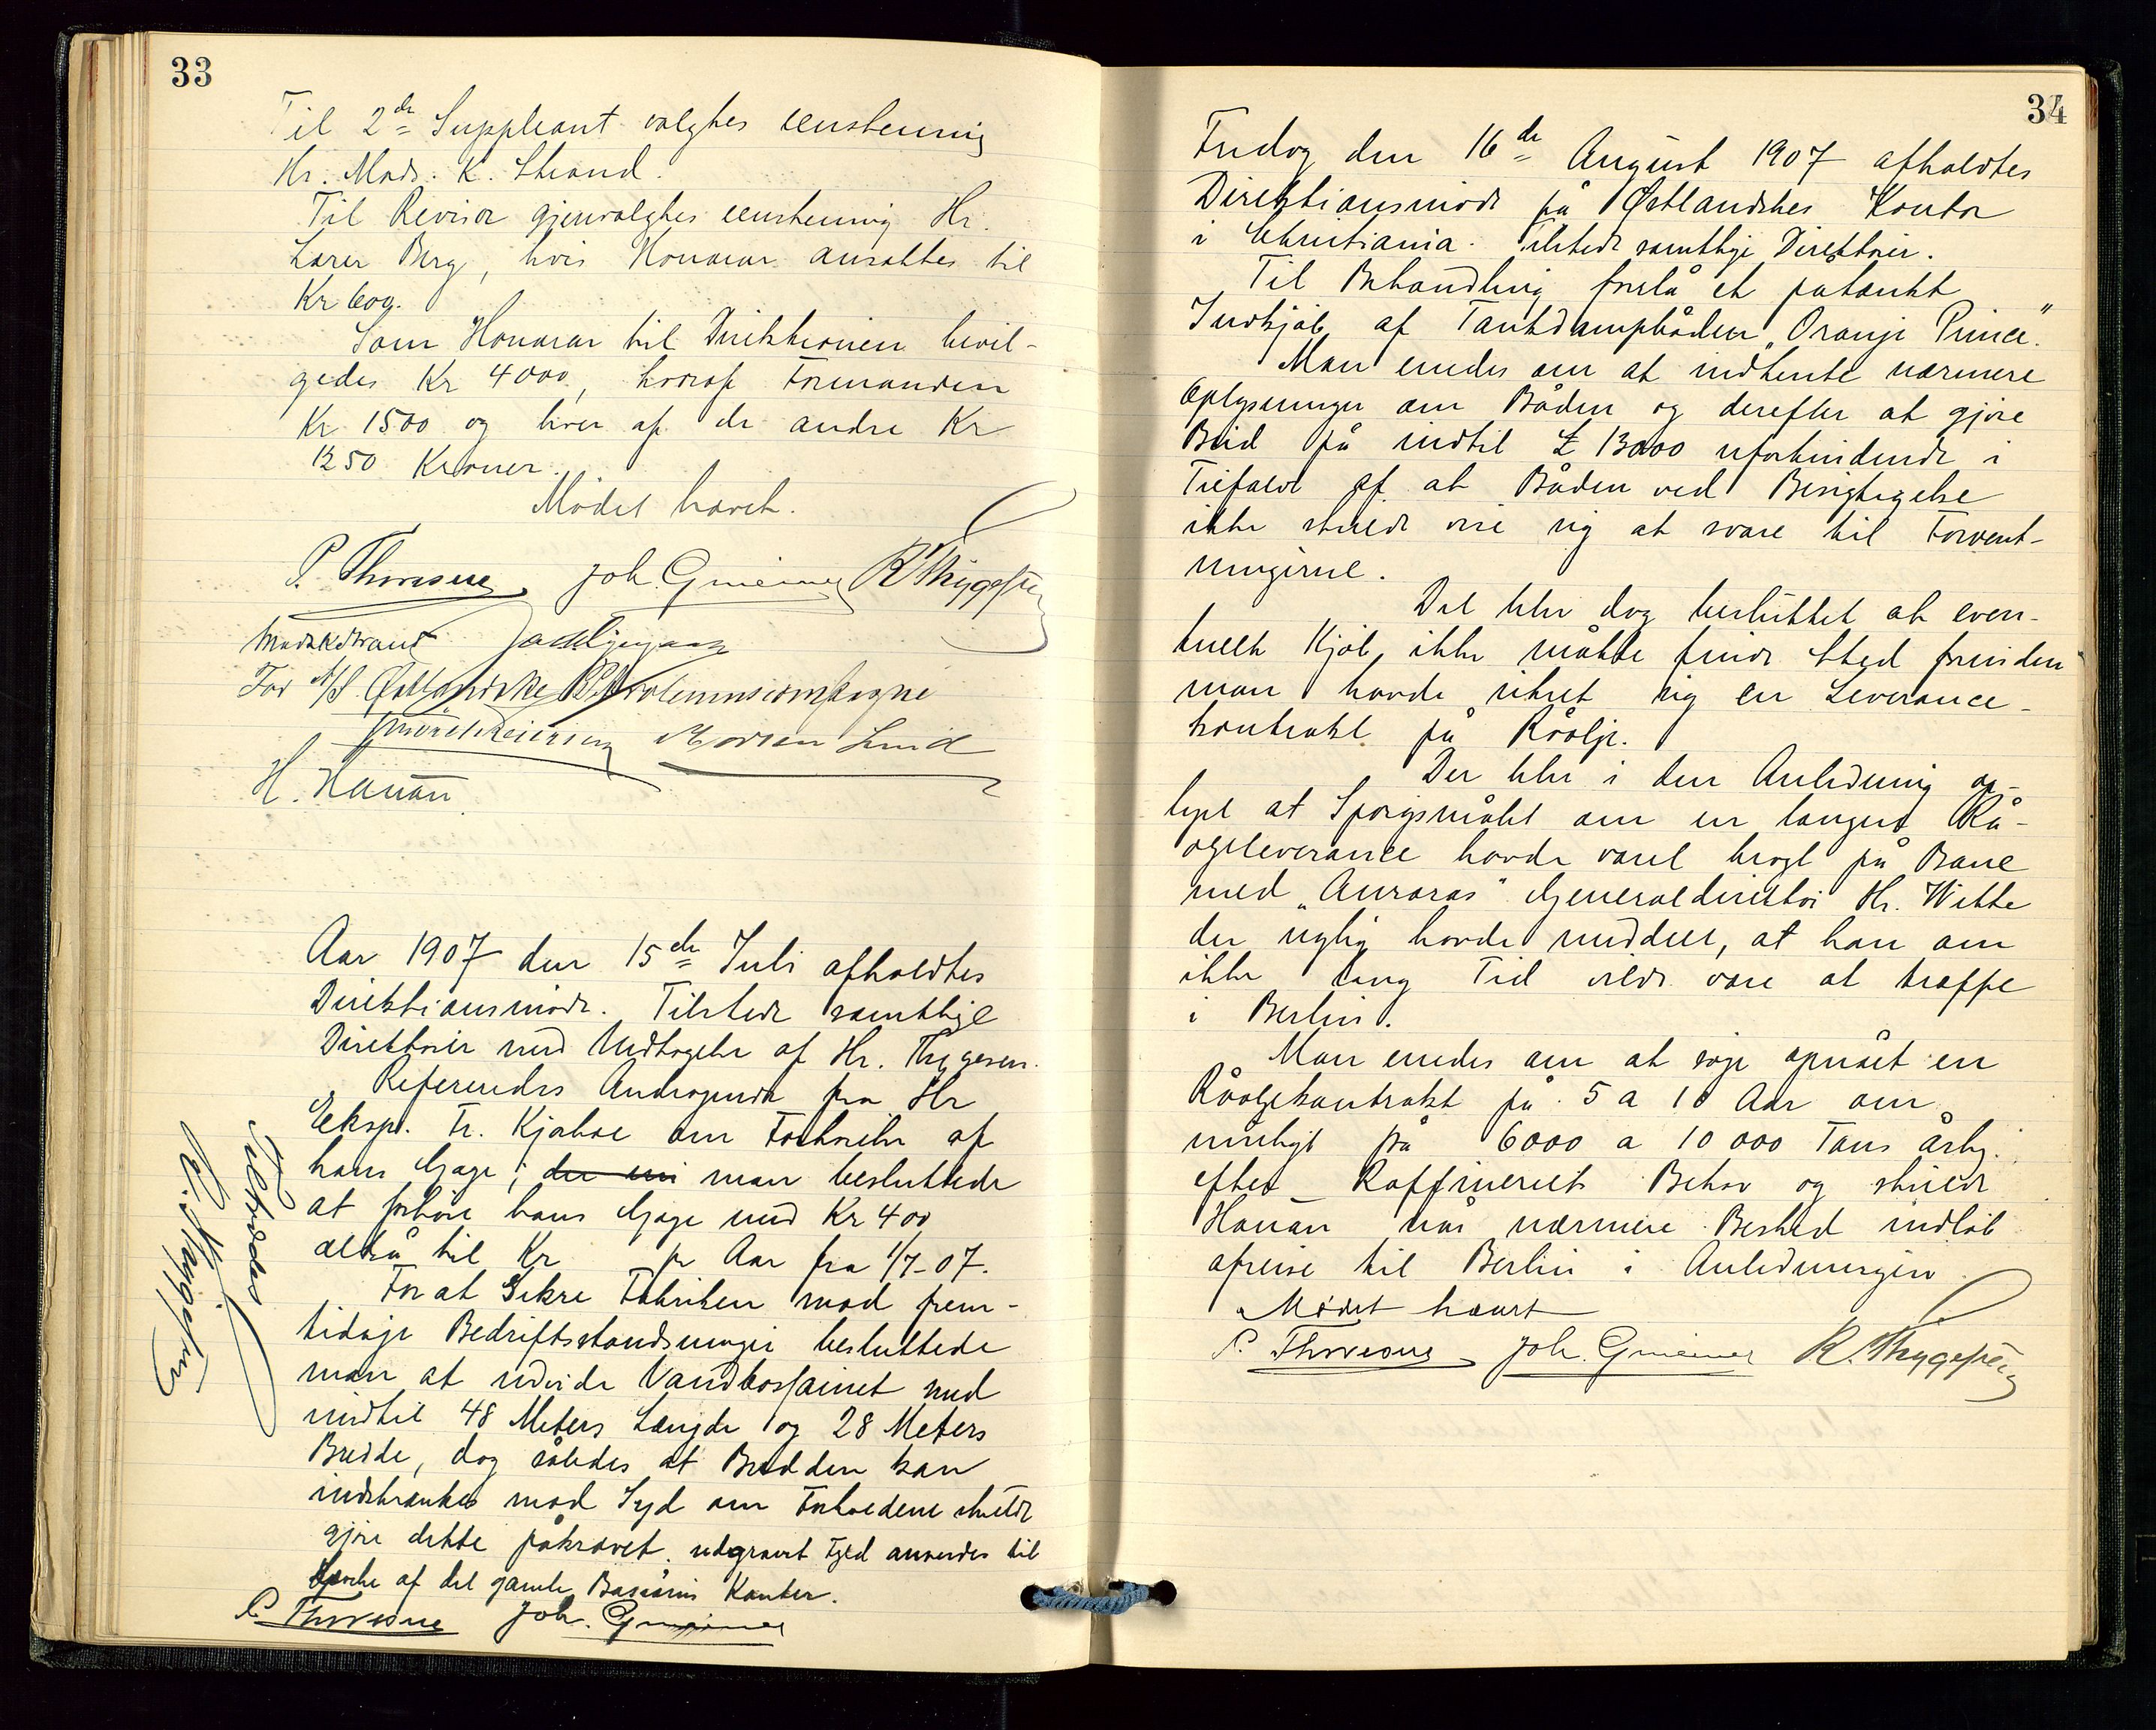 33
Til 2de Suppleant valgtes eenstemmig
Hr. Mads. K. Strand.
Til Revisor gjenvalgtes eenstemmig Hr.
Lærer Berg, hvis Honorar ansattes til
Kr 60.
Som Honorar til Direktionen bevil-
gedes Kr 4000, hvoraf Formanden
Kr 1500 og hver af de andre Kr
1250 Kroner.
Mødet hævet.
P. Thoresne Joh. R Thygesen
Mads K Strand
For A/S Østlandske Petroleumscompagni
Morten Lind
H. Hanan
Aar 1907 den 15de Juli afholdtes
Direktionsmøde. Tilstede samtlige
Direktører med Undtagelse af Hr. Thygesen.
Refereredes Andragende fra Hr
Eksp. Fr. Kjærboe om Forhøielse af
hans Gage; man besluttede
at forhøie hans Gage med Kr 400
altså til Kr pr Aar fra 1/7-07.
For at sikre Fabriken mod frem-
tidige Bedriftsstandsninger besluttede
man at udvide Vandbassainet med
indtil 48 Meters Længde og 28 Meters
Bredde, dog således at Bredden kan
indskrænkes mod Syd om Forholdene skulde
gjøre dette påkrævet. udgravet Fyld anvendes til
af det gamle Bassains Kanter.
P. Thoresne Joh.
Tiltrædes
R. Thygesen
34
Fredag den 16de August 1907 afholdtes
Direktionsmøde på Østlandskes Kontor
i Christiania. Tilstede samtlige Direktører.
Til Behandling forelå et patænkt
Indkjøb af Tankdampbåden „Oranje Prince".
Man enedes om at indhente nærmere
Oplysninger om Båden og derefter at gjøre
Bud på indtil £ 13000 uforbindende i
Tilfælde af at Båden ved Besigtigelse
ikke skulde vise sig at svare til Forvent-
ningerne.
Det blev dog besluttet at even-
tuelt Kjøb ikke måtte finde Sted forinden
man havde sikret sig en Leverance-
kontrakt på Råolje.
Der blev i den Anledning op-
lyst at Spørgsmålet om en længere Rå-
oljeleverance havde været bragt på Bane
med „Auroras" Generaldirektør Hr. Witte
der nylig havde meddelt, at han om
ikke lang Tid vilde være at træffe
i Berlin.
Man enedes om at søge opnået en
Råoljekontrakt på 5 a 10 Aar om
muligt på 6000 a 10 000 Tons årlig.
efter Raffineriets Behov og skulde
Hanan når nærmere Besked indløb
afreise til Berlin i Anledningen
Mødet hævet
P. Thoresne Joh. R. Thygesen